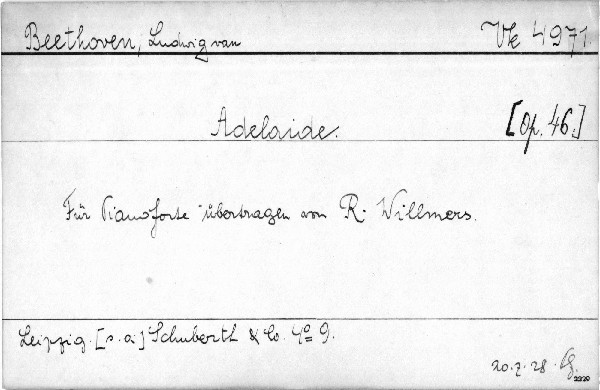 Beethoven, Ludwig van Vk 4971.
Adelaide. [Op. 46.]
Für Pianoforte übertragen von R. Willmers.
Leipzig. [s. a.] Schuberth & Co. 4º 9.
20. 7. 28